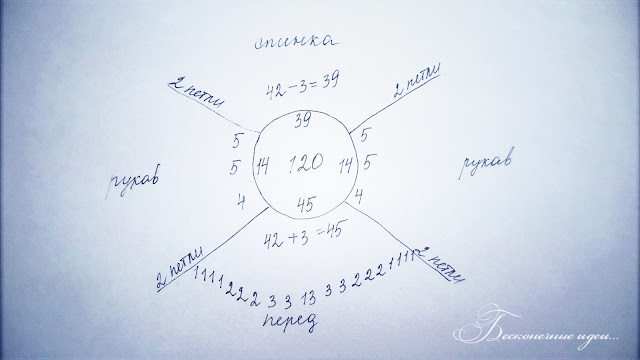 спинка
42-3=39
2 петли
2 петли
39
5
5
5
14
120
14
5
4
4
рукав
рукав
45
42+3=45
2 петли
2 петли
1 1 1 1 2 2 2 3 3 13 3 3 2 2 2 1 1 1 1
перед
Бесконечные идеи...